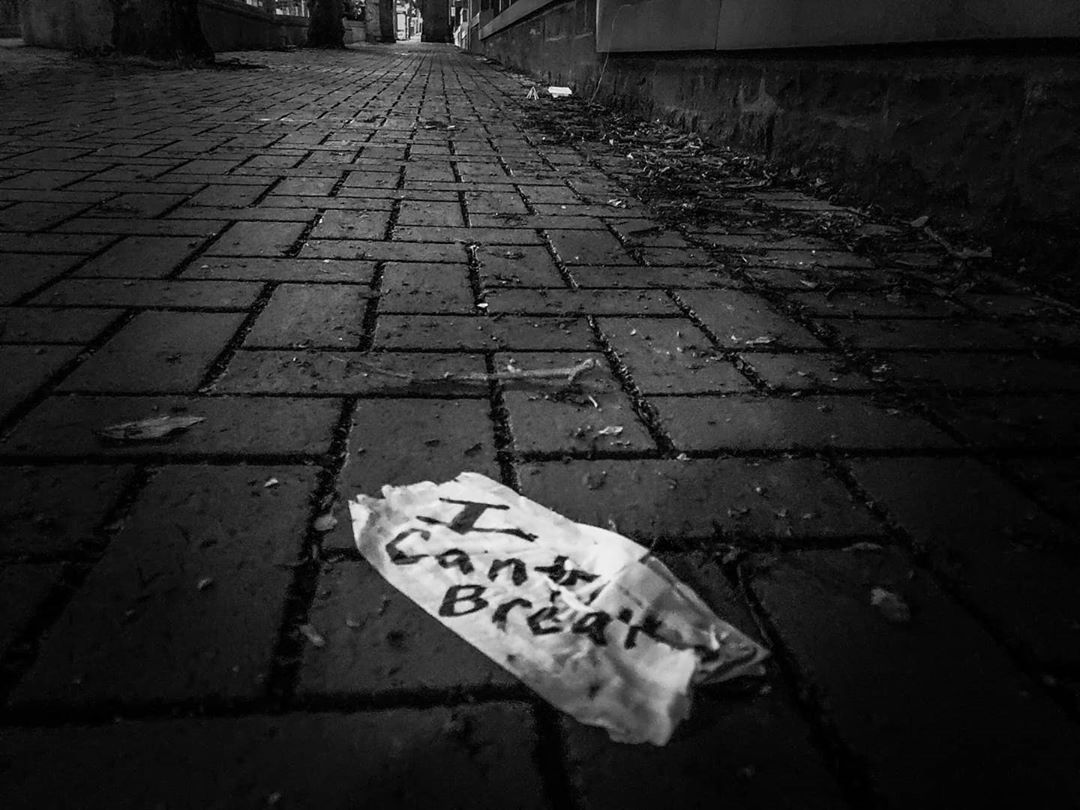 I
Can't
Break